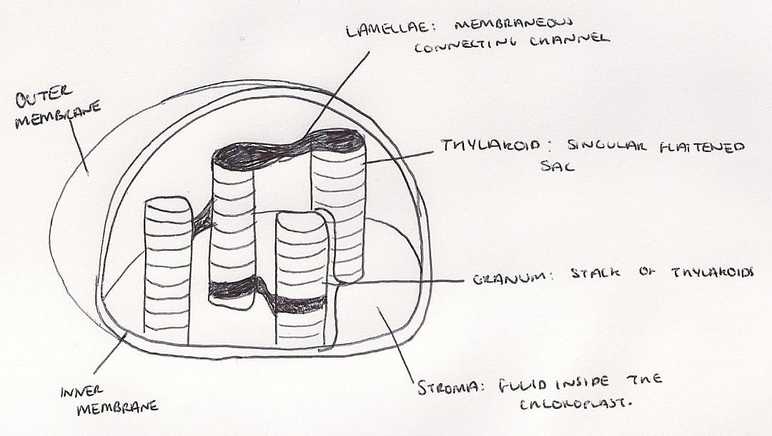 LAMELLAE: MEMBRANEOUS
CONNECTING CHANNEL
OUTER
MEMBRANE
THYLAKOID: SINGULAR FLATTENED
SAC
GRANUM: STACK OF THYLAKOIDS
STROMA: FLUID INSIDE THE
CHLOROPLAST.
INNER
MEMBRANE